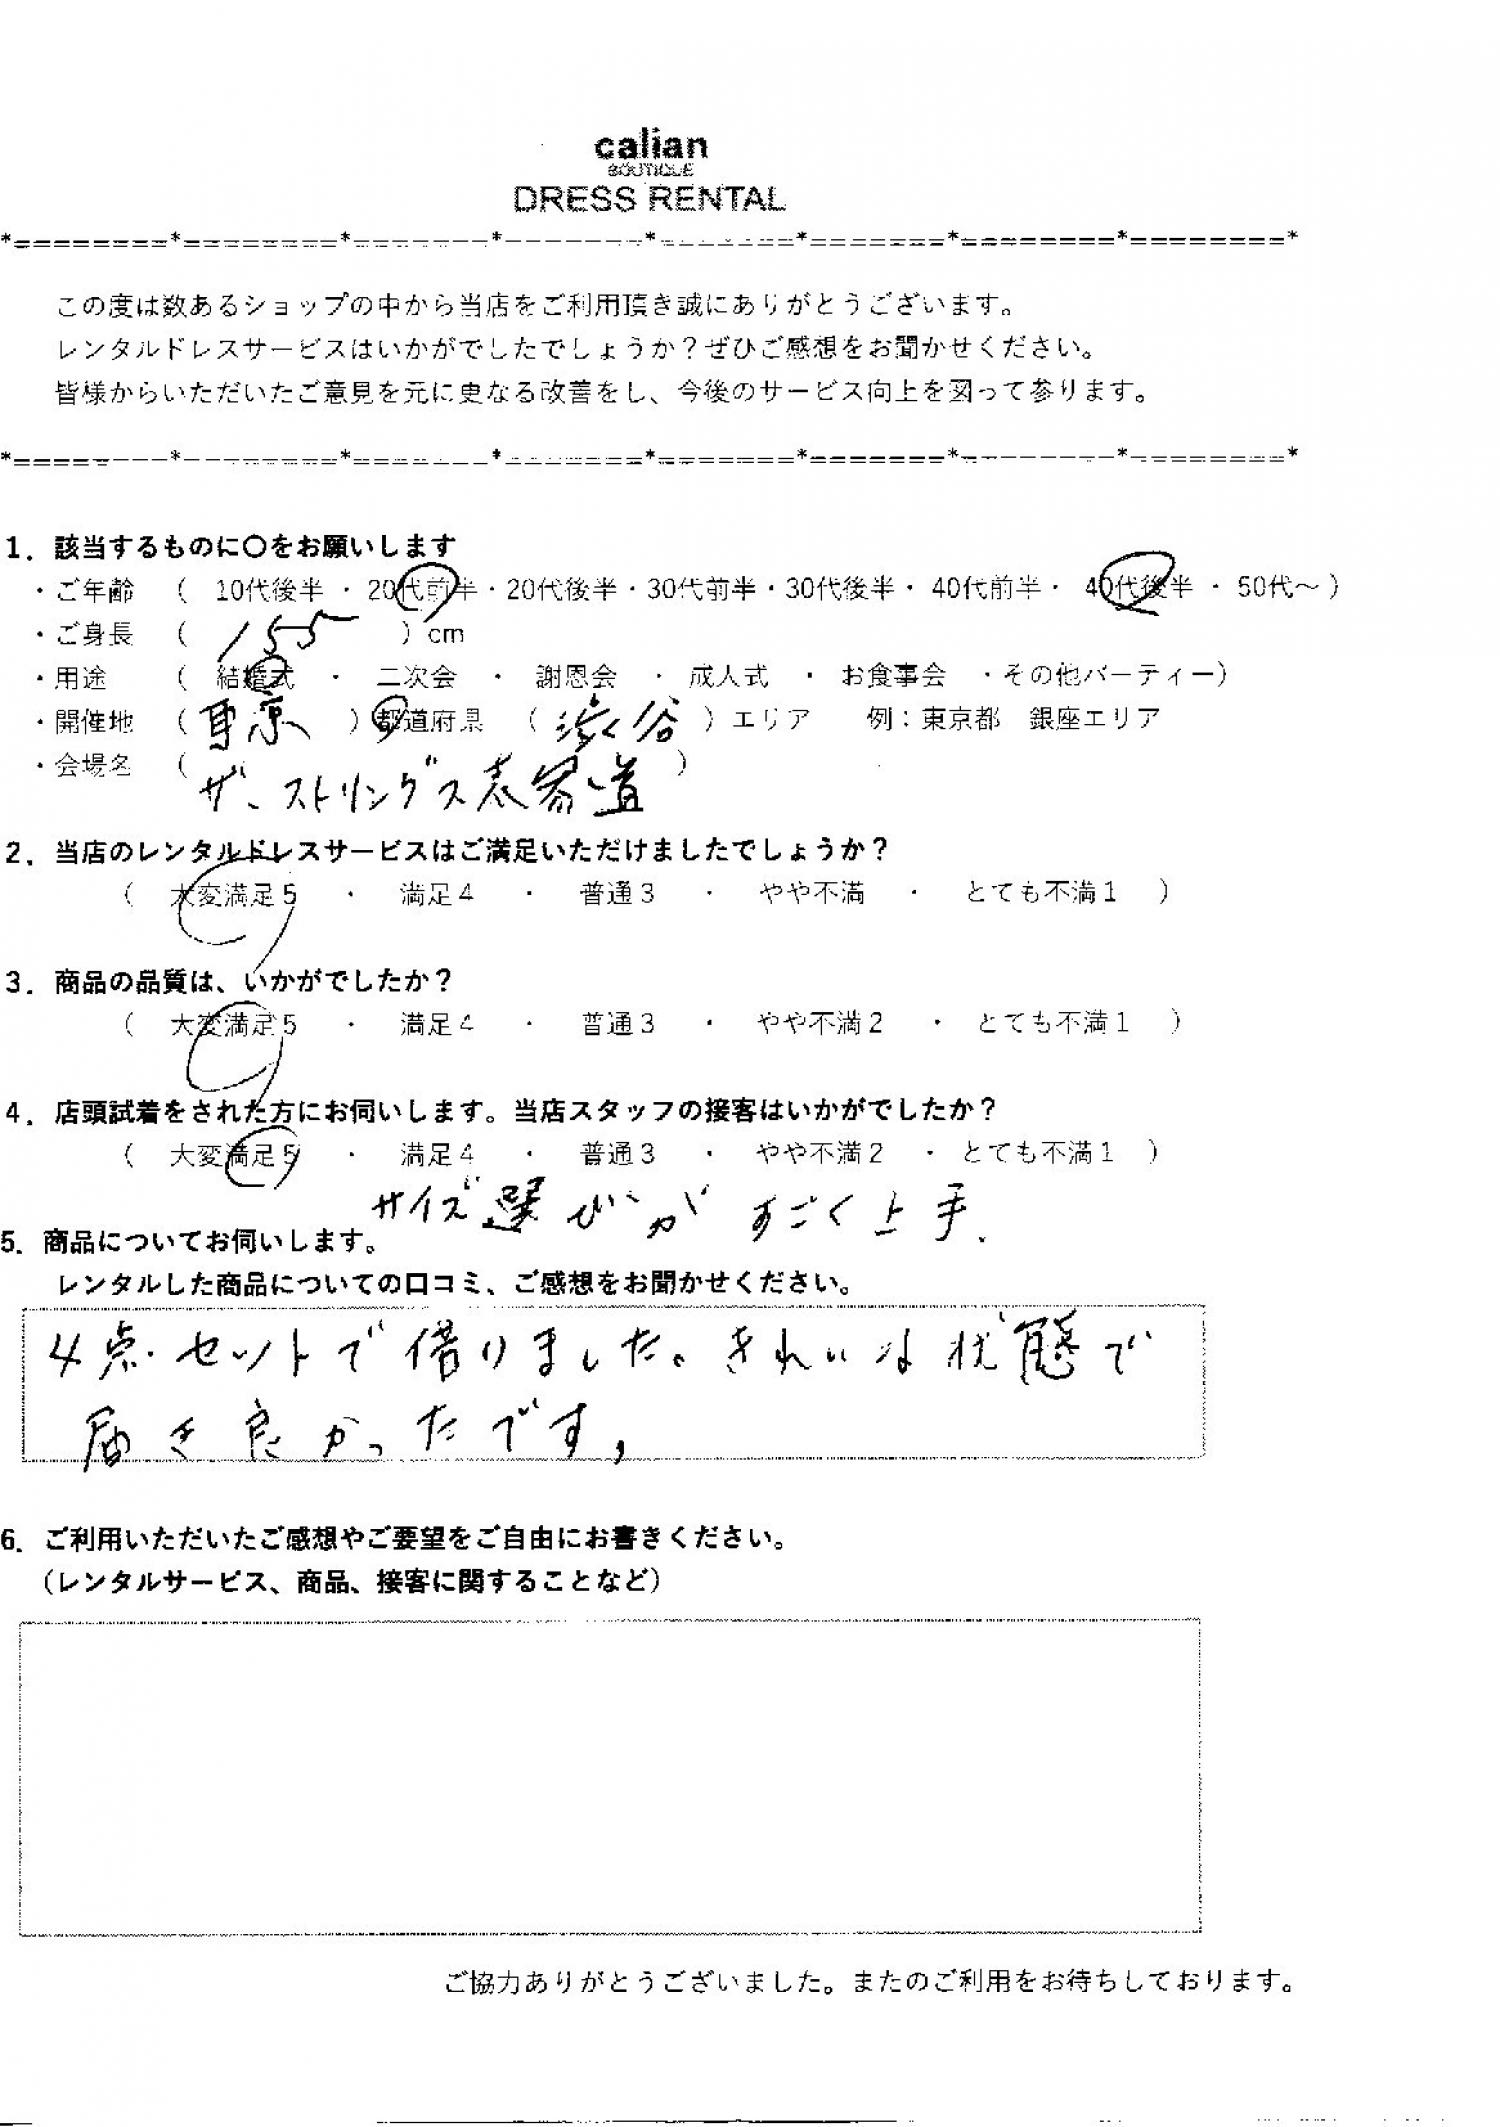 calian
BOUTIQUE
DRESS RENTAL
*========*========*=======*--------*========*=======*========*========*
この度は数あるショップの中から当店をご利用頂き誠にありがとうございます。
レンタルドレスサービスはいかがでしたでしょうか？ぜひご感想をお聞かせください。
皆様からいただいたご意見を元に更なる改善をし、今後のサービス向上を図って参ります。
*========*========*=======*========*=======*=======*--------*========*
1．該当するものに〇をお願いします
・ご年齢 （ 10代後半 ・ 20代前半・20代後半・30代前半・30代後半・ 40代前半・ 40代後半 ・ 50代～ ）
・ご身長 （ 155 ）cm
・用途 （ 結婚式 ・ 二次会 ・ 謝恩会 ・ 成人式 ・ お食事会 ・その他パーティー）
・開催地 （ 東京 ）都道府県 （ 渋谷 ）エリア 例：東京都 銀座エリア
・会場名 （ ザ、ストリングス表参道 ）
2．当店のレンタルドレスサービスはご満足いただけましたでしょうか？
（ 大変満足５ ・ 満足４ ・ 普通３ ・ やや不満 ・ とても不満１ ）
3．商品の品質は、いかがでしたか？
（ 大変満足５ ・ 満足４ ・ 普通３ ・ やや不満２ ・ とても不満１ ）
4．店頭試着をされた方にお伺いします。当店スタッフの接客はいかがでしたか？
（ 大変満足５ ・ 満足４ ・ 普通３ ・ やや不満２ ・ とても不満１ ）
サイズ選びがすごく上手.
5．商品についてお伺いします。
レンタルした商品についての口コミ、ご感想をお聞かせください。
4点セットで借りました。きれいな状態で
届き良かったです,
6．ご利用いただいたご感想やご要望をご自由にお書きください。
（レンタルサービス、商品、接客に関することなど）
ご協力ありがとうございました。またのご利用をお待ちしております。